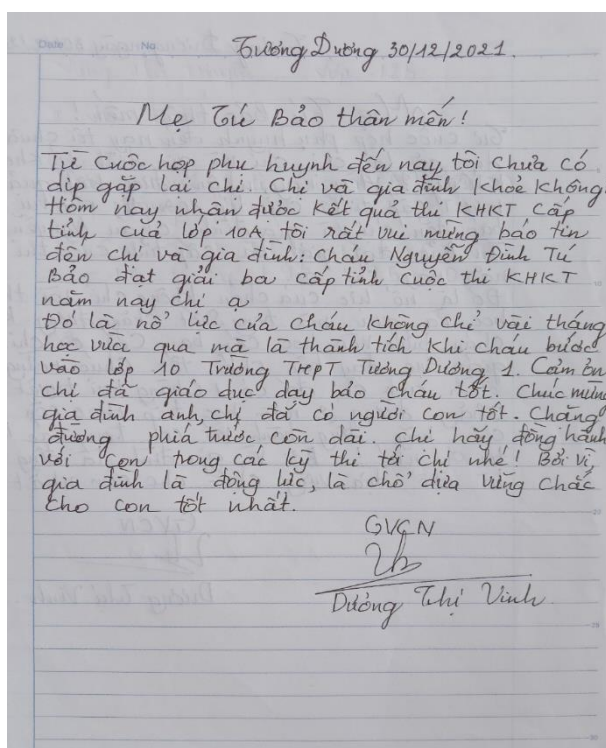 Date No Tương Dương 30/12/2021.
Mẹ Tú Bảo thân mến!
Từ cuộc họp phụ huynh đến nay tôi chưa có
dịp gặp lại chị. Chị và gia đình khoẻ không.
Hôm nay nhận được kết quả thi KHKT cấp
tỉnh của lớp 10A tôi rất vui mừng báo tin
đến chị và gia đình: Cháu Nguyễn Đình Tú
Bảo đạt giải ba cấp tỉnh cuộc thi KHKT
năm nay chị ạ
Đó là nỗ lực của cháu không chỉ vài tháng
học vừa qua mà là thành tích khi cháu bước
vào lớp 10 Trường THPT Tương Dương 1. Cảm ơn
chị đã giáo dục dạy bảo cháu tốt. Chúc mừng
gia đình anh, chị đã có người con tốt. Chặng
đường phía trước còn dài. Chị hãy đồng hành
với con trong các kỳ thi tới chị nhé! Bởi vì
gia đình là động lực, là chỗ dựa vững chắc
cho con tốt nhất.
GVCN
Dương Thị Vinh